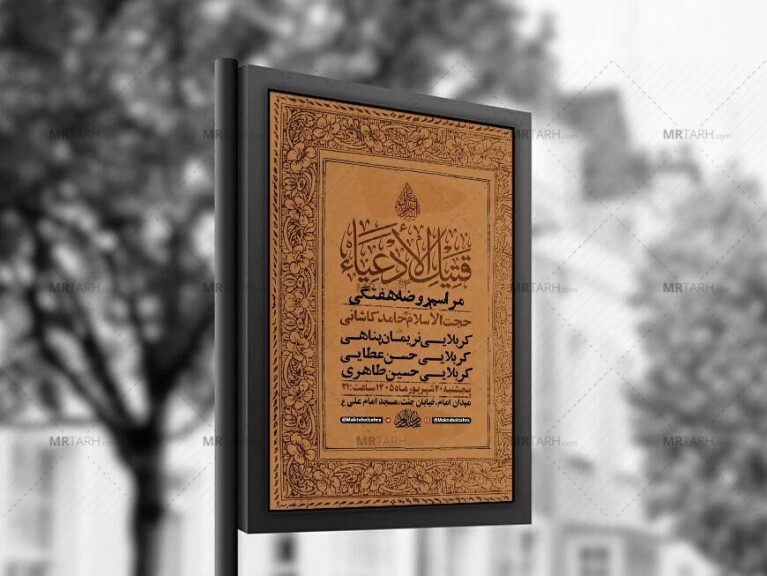 قتيل الأدعياء
مراسم روضه هفتگی
حجت الاسلام حامد کاشانی
کربلایی نریمان پناهی
کربلایی حسن عطایی
کربلایی حسین طاهری
پنجشنبه ۲۰ شهریور ماه ۱۴۰۵ ساعت: ۲۱
میدان امام، خیابان جنت، مسجد امام علی ع
@Maktabolzahra @Maktabolzahra
MRTARH.com